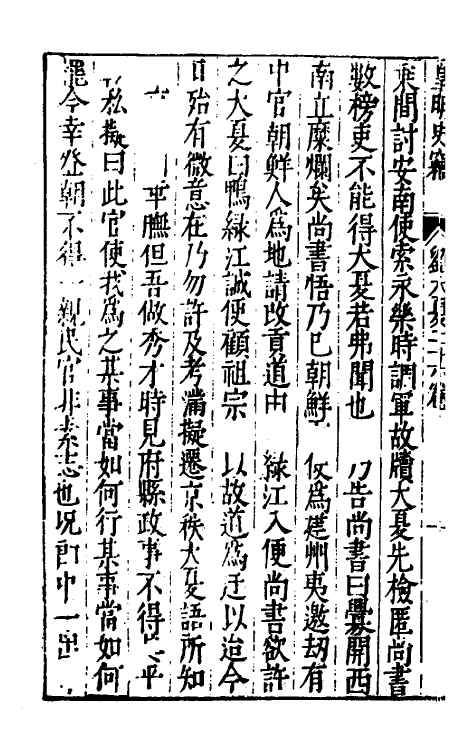 皇明史竊 劉大夏二十六卷
乘間討安南使索永樂時調軍故牘大夏先檢匿尚書
數榜吏不能得大夏若弗聞也 乃告尚書曰釁開西
南立糜爛矣尚書悟乃已朝鮮 使為建州夷邀刼有
中官朝鮮人為地請改貢道由 綠江入便尚書欲許
之大夏曰鴨綠江誠便顧祖宗 以故道為迂以迨今
日殆有微意在乃勿許及考滿擬遷京秩大夏語所知
平膴但吾做秀才時見府縣政事不得 平
私擬曰此官使我為之某事當如何行某事當如何
罷今幸登朝不得一親民官非素志也況 中一